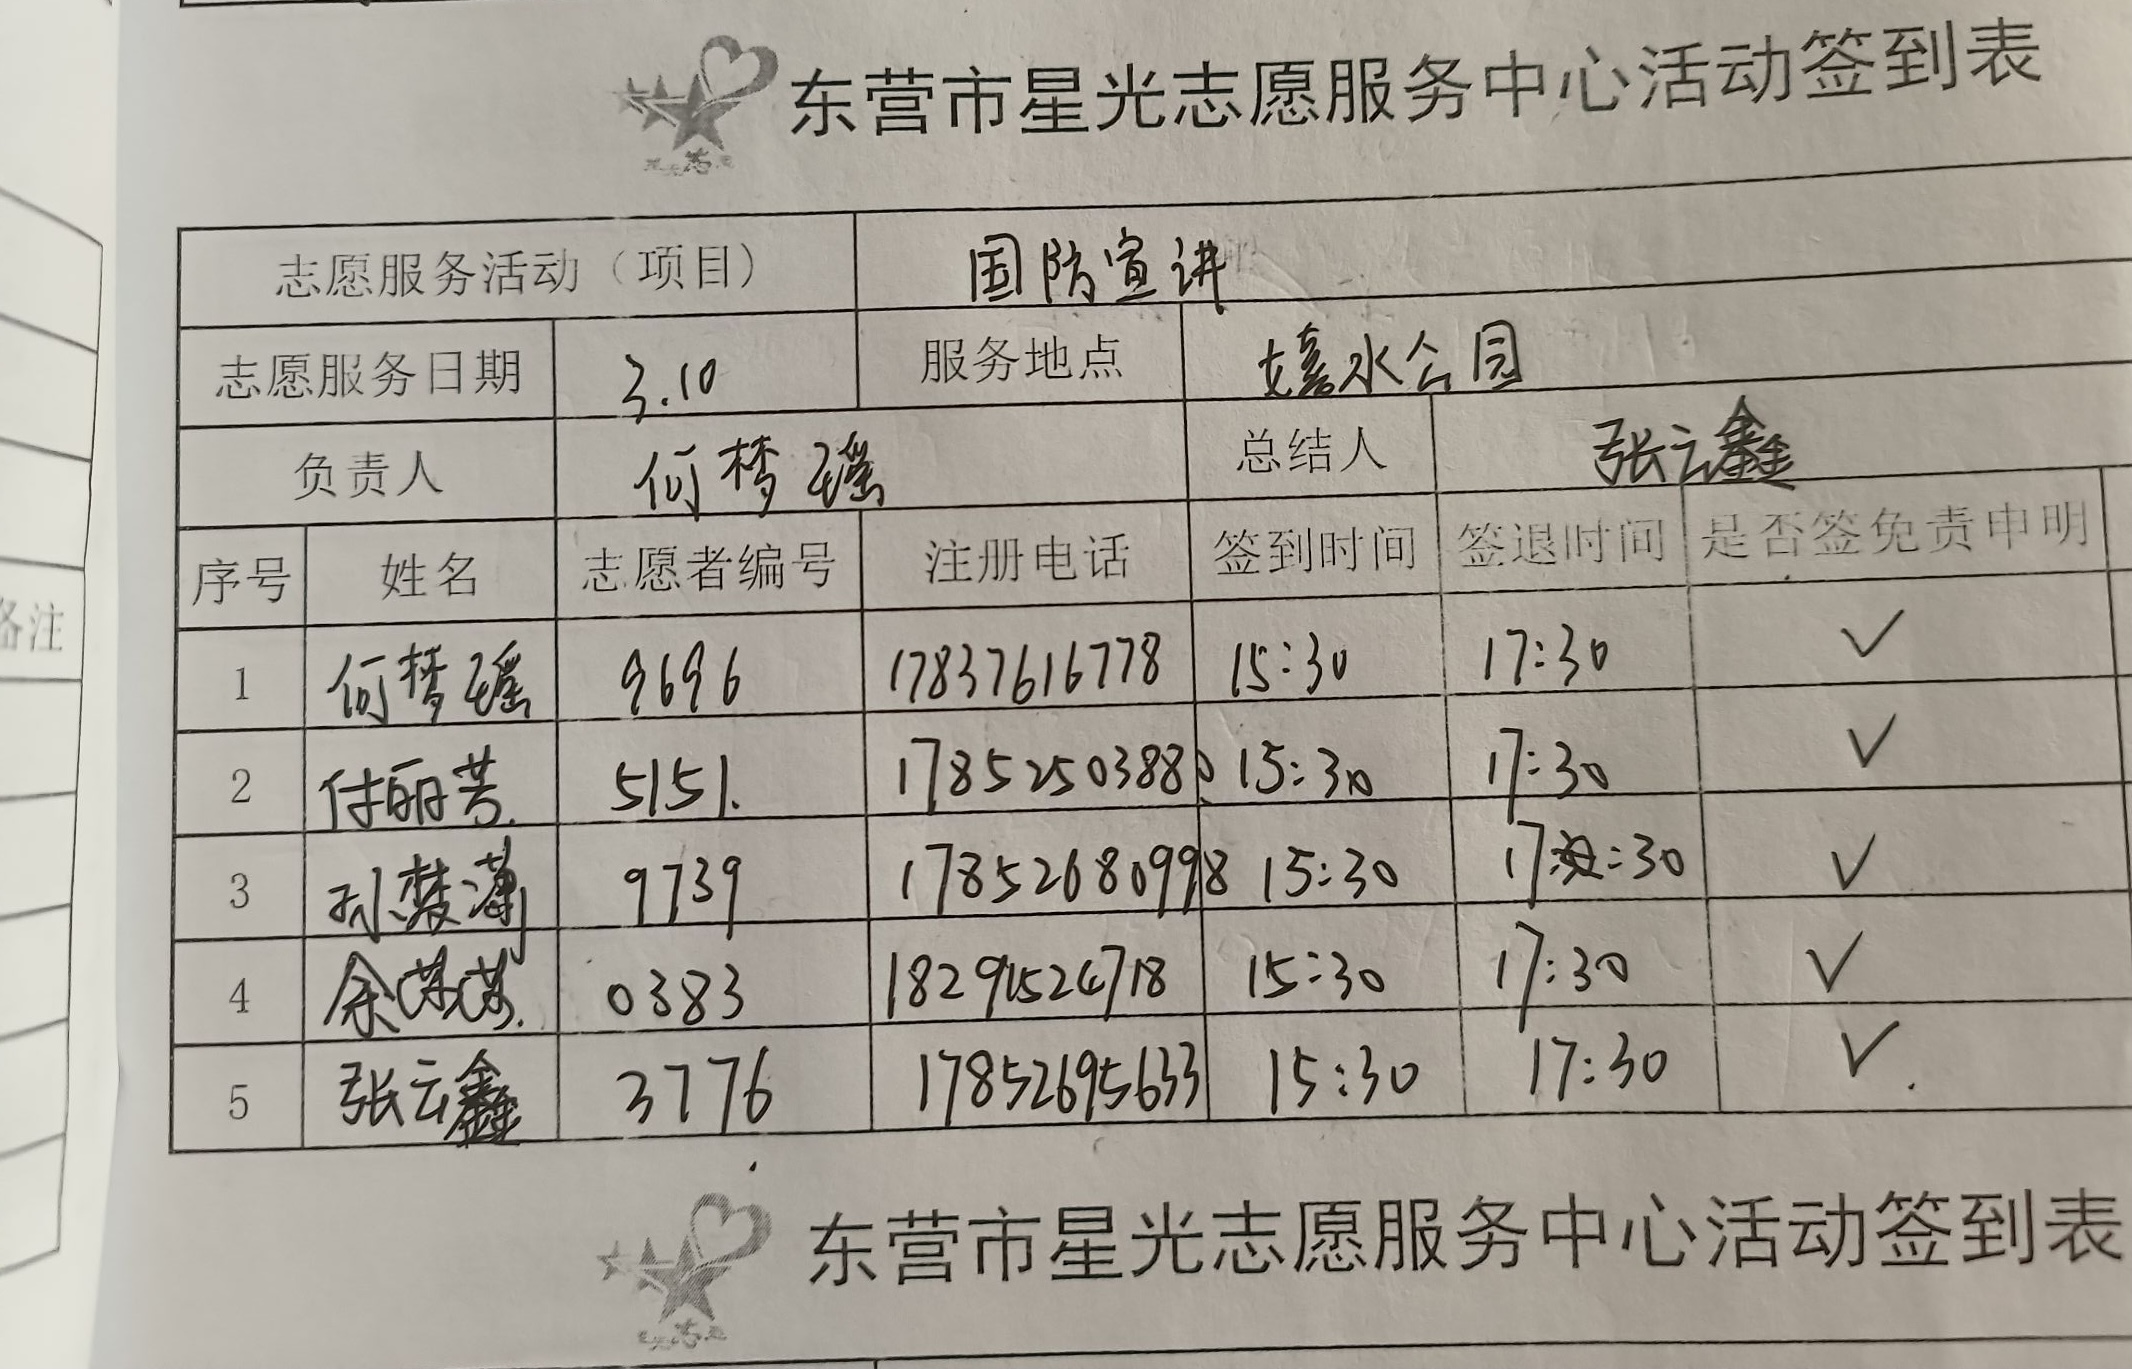 东营市星光志愿服务中心活动签到表
志愿服务活动（项目） 国防宣讲
志愿服务日期 3.10 服务地点 嬉水公园
负责人 何梦瑶 总结人 张云鑫
序号 姓名 志愿者编号 注册电话 签到时间 签退时间 是否签免责申明
备注
1 何梦瑶 9696 17837616778 15:30 17:30 ✓
2 付丽芳. 5151. 17852503880 15:30 17:30 ✓
3 孙梦 9739 17852680998 15:30 17:30 ✓
4 余 0383 15:30 17:30 ✓
5 张云鑫 3776 17852695633 15:30 17:30 ✓.
东营市星光志愿服务中心活动签到表